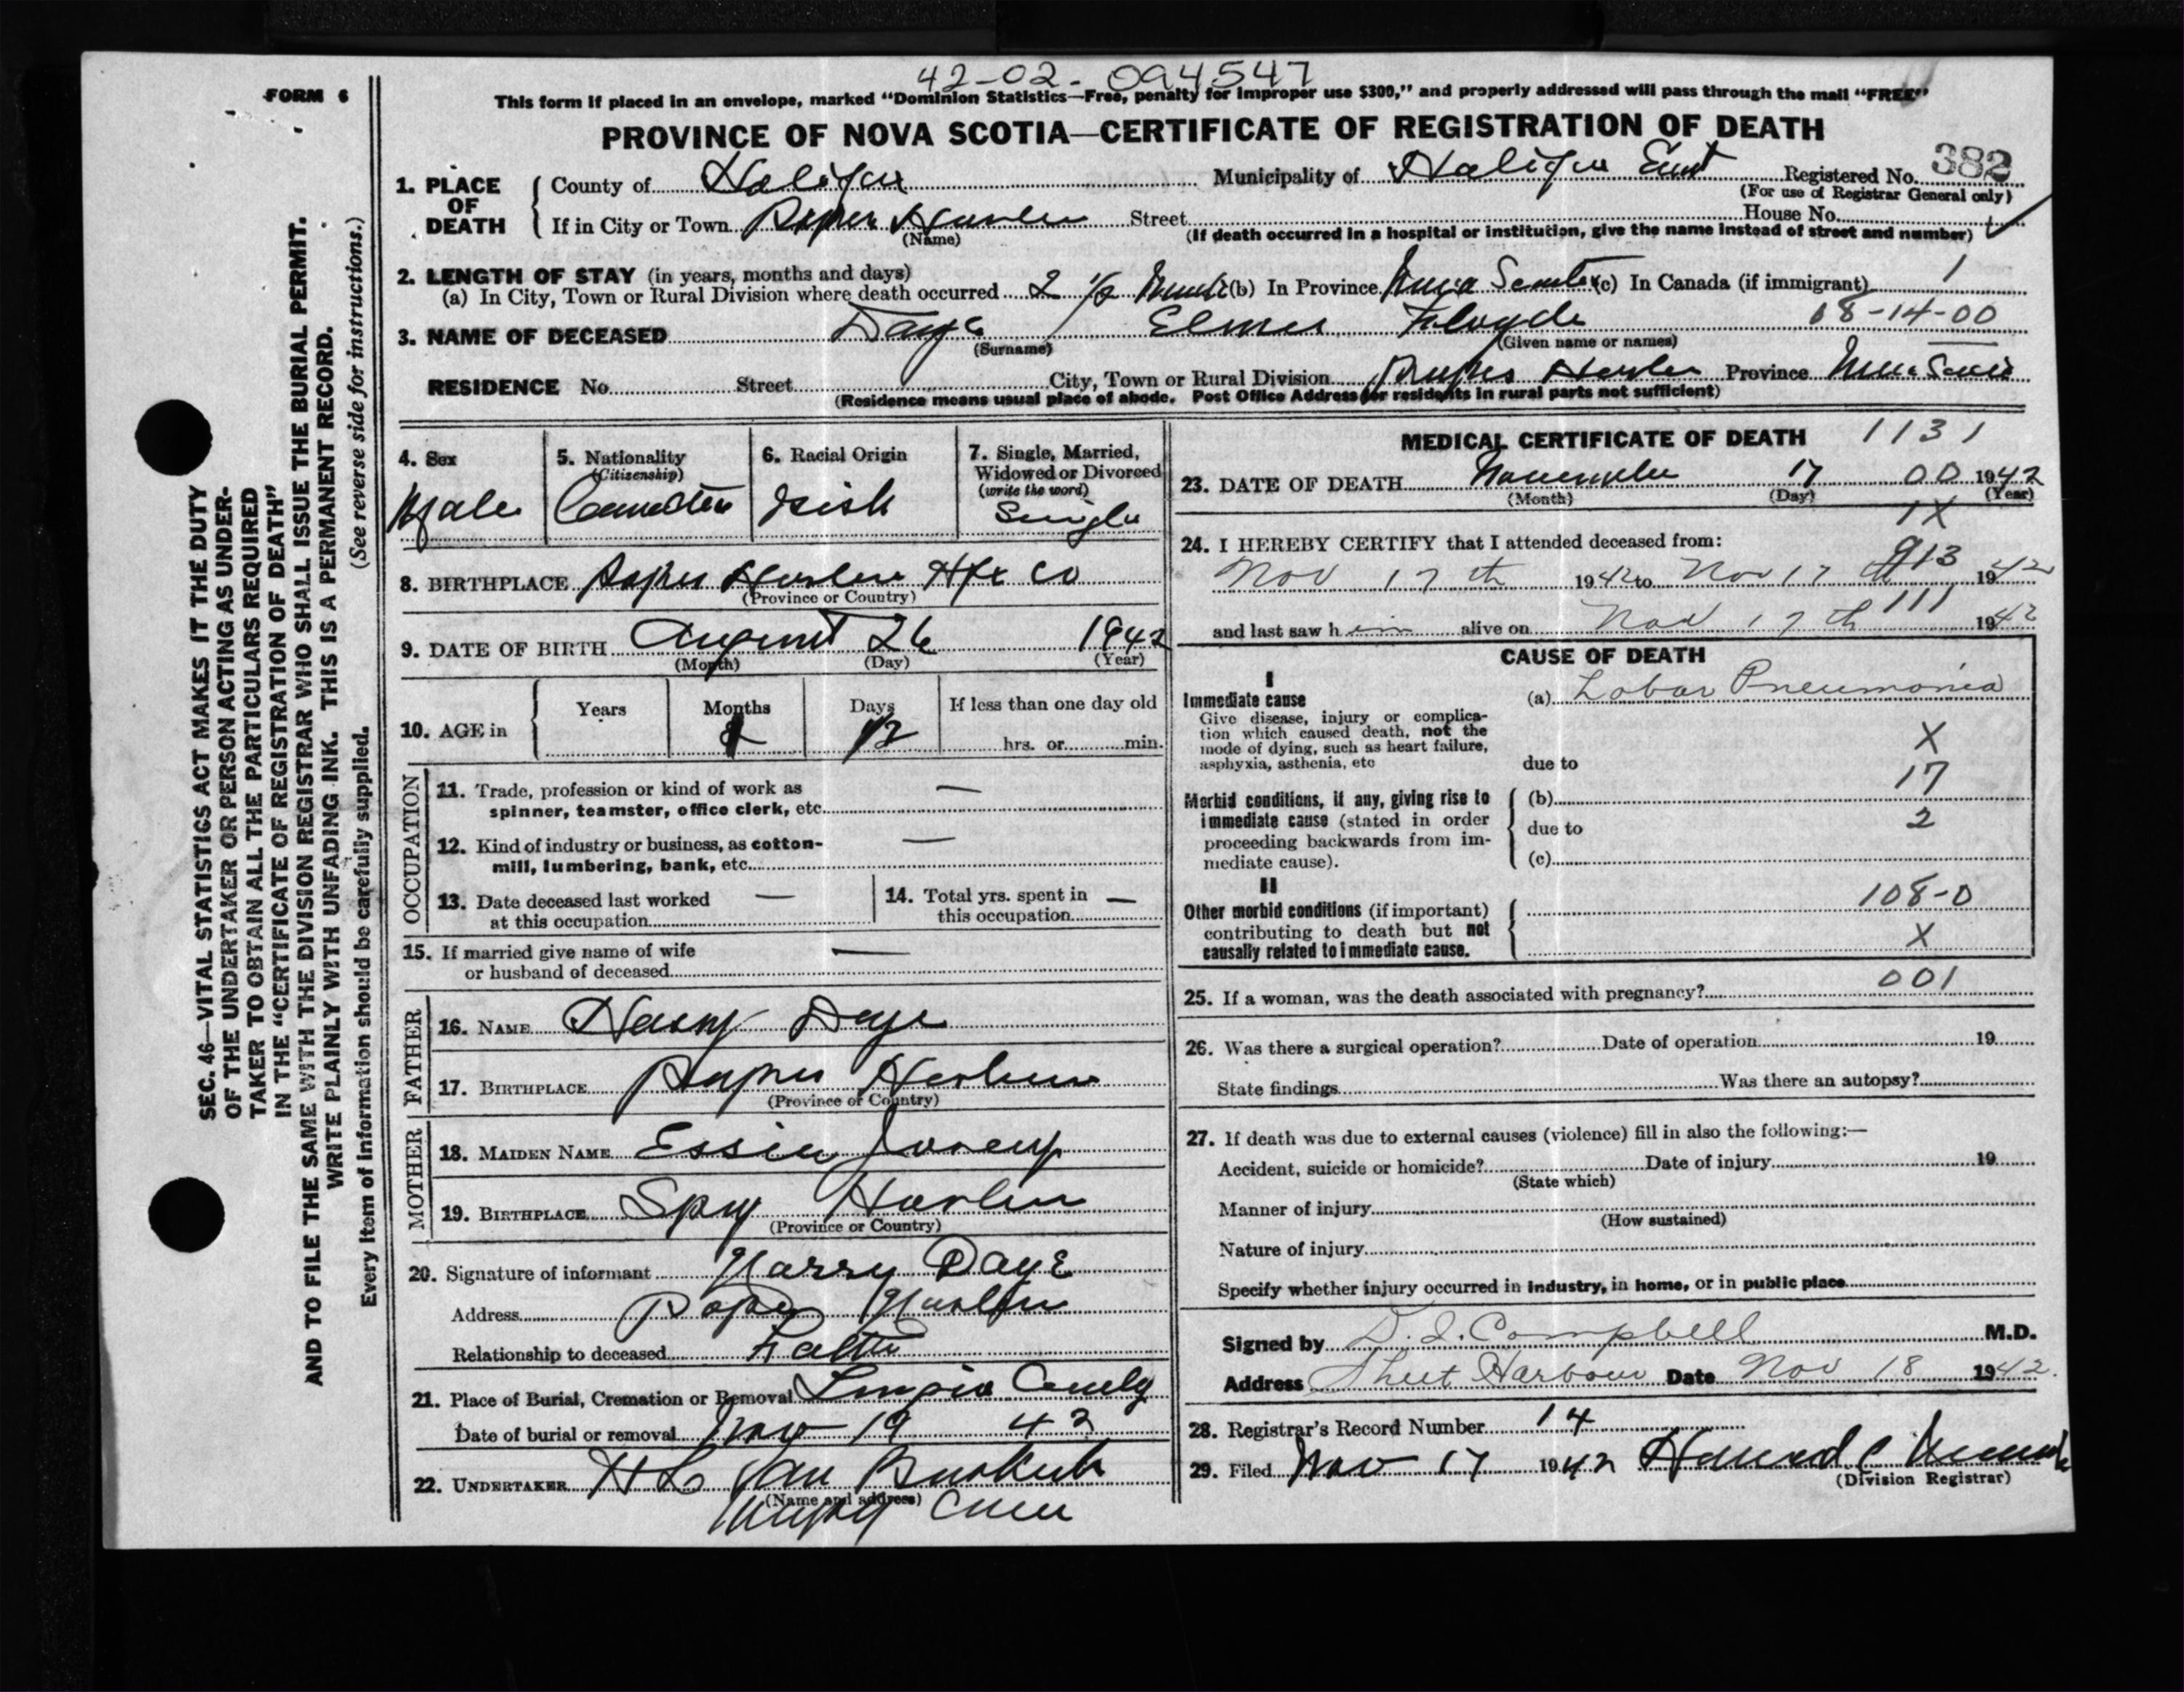 42-02-094547
FORM 6
This form if placed in an envelope, marked “Dominion Statistics—Free, penalty for improper use $300,” and properly addressed will pass through the mail “FREE”
PROVINCE OF NOVA SCOTIA—CERTIFICATE OF REGISTRATION OF DEATH
1. PLACE OF DEATH County of Halifax Municipality of Halifax East Registered No. 382
(For use of Registrar General only)
If in City or Town Harbour Street House No.
(Name) (If death occurred in a hospital or institution, give the name instead of street and number)
2. LENGTH OF STAY (in years, months and days)
(a) In City, Town or Rural Division where death occurred 2 1/2 (b) In Province Nova Scotia (c) In Canada (if immigrant) 1
3. NAME OF DECEASED Daye Elmer Floyde 08-14-00
(Surname) (Given name or names)
RESIDENCE No. Street City, Town or Rural Division Harbour Province Nova Scotia
(Residence means usual place of abode. Post Office Address for residents in rural parts not sufficient)
4. Sex Male
5. Nationality (Citizenship) Canadian
6. Racial Origin Irish
7. Single, Married, Widowed or Divorced (write the word) Single
8. BIRTHPLACE Harbour Hfx Co
(Province or Country)
9. DATE OF BIRTH August 26 1942
(Month) (Day) (Year)
10. AGE in Years Months 2 Days If less than one day old hrs. or min.
OCCUPATION
11. Trade, profession or kind of work as spinner, teamster, office clerk, etc. —
12. Kind of industry or business, as cotton-mill, lumbering, bank, etc. —
13. Date deceased last worked at this occupation —
14. Total yrs. spent in this occupation —
15. If married give name of wife or husband of deceased —
FATHER
16. NAME Harry Daye
17. BIRTHPLACE Harbour
(Province or Country)
MOTHER
18. MAIDEN NAME Essie
19. BIRTHPLACE Spry Harbour
(Province or Country)
20. Signature of informant Harry Daye
Address Harbour
Relationship to deceased Father
21. Place of Burial, Cremation or Removal
Date of burial or removal Nov 19 42
22. UNDERTAKER H L
(Name and address)
MEDICAL CERTIFICATE OF DEATH 1131
23. DATE OF DEATH November 17 00 1942
(Month) (Day) (Year)
1X
24. I HEREBY CERTIFY that I attended deceased from:
913
Nov 17 th 1942 to Nov 17 th 1942
111
and last saw him alive on Nov 17 th 1942
CAUSE OF DEATH
I
Immediate cause (a) Lobar Pneumonia
Give disease, injury or complication which caused death, not the mode of dying, such as heart failure, asphyxia, asthenia, etc
X
due to
17
Morbid conditions, if any, giving rise to immediate cause (stated in order proceeding backwards from immediate cause).
(b)
due to 2
(c)
II
Other morbid conditions (if important) contributing to death but not causally related to immediate cause.
108-0
X
001
25. If a woman, was the death associated with pregnancy?
26. Was there a surgical operation? Date of operation 19
State findings Was there an autopsy?
27. If death was due to external causes (violence) fill in also the following:—
Accident, suicide or homicide? Date of injury 19
(State which)
Manner of injury
(How sustained)
Nature of injury
Specify whether injury occurred in industry, in home, or in public place
Signed by D. I. Campbell M.D.
Address Sheet Harbour Date Nov 18 1942.
28. Registrar's Record Number 14
29. Filed Nov 17 1942
(Division Registrar)
SEC. 46—VITAL STATISTICS ACT MAKES IT THE DUTY
OF THE UNDERTAKER OR PERSON ACTING AS UNDER-
TAKER TO OBTAIN ALL THE PARTICULARS REQUIRED
IN THE “CERTIFICATE OF REGISTRATION OF DEATH”
AND TO FILE THE SAME WITH THE DIVISION REGISTRAR WHO SHALL ISSUE THE BURIAL PERMIT.
WRITE PLAINLY WITH UNFADING INK. THIS IS A PERMANENT RECORD.
Every item of information should be carefully supplied. (See reverse side for instructions.)